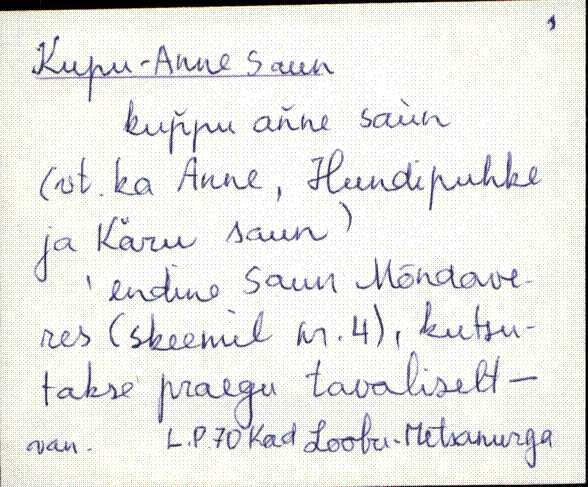 Kupu-Anne Saun
kup̆pu añne saùn
(vt. ka Anne, Hundipuhke
ja Käru saun)
' endine saun Mõndave-
res (skeemil nr. 4), kutsu-
takse praegu tavaliselt —
van. L.P. 70 Kad Loobu-Metsanurga